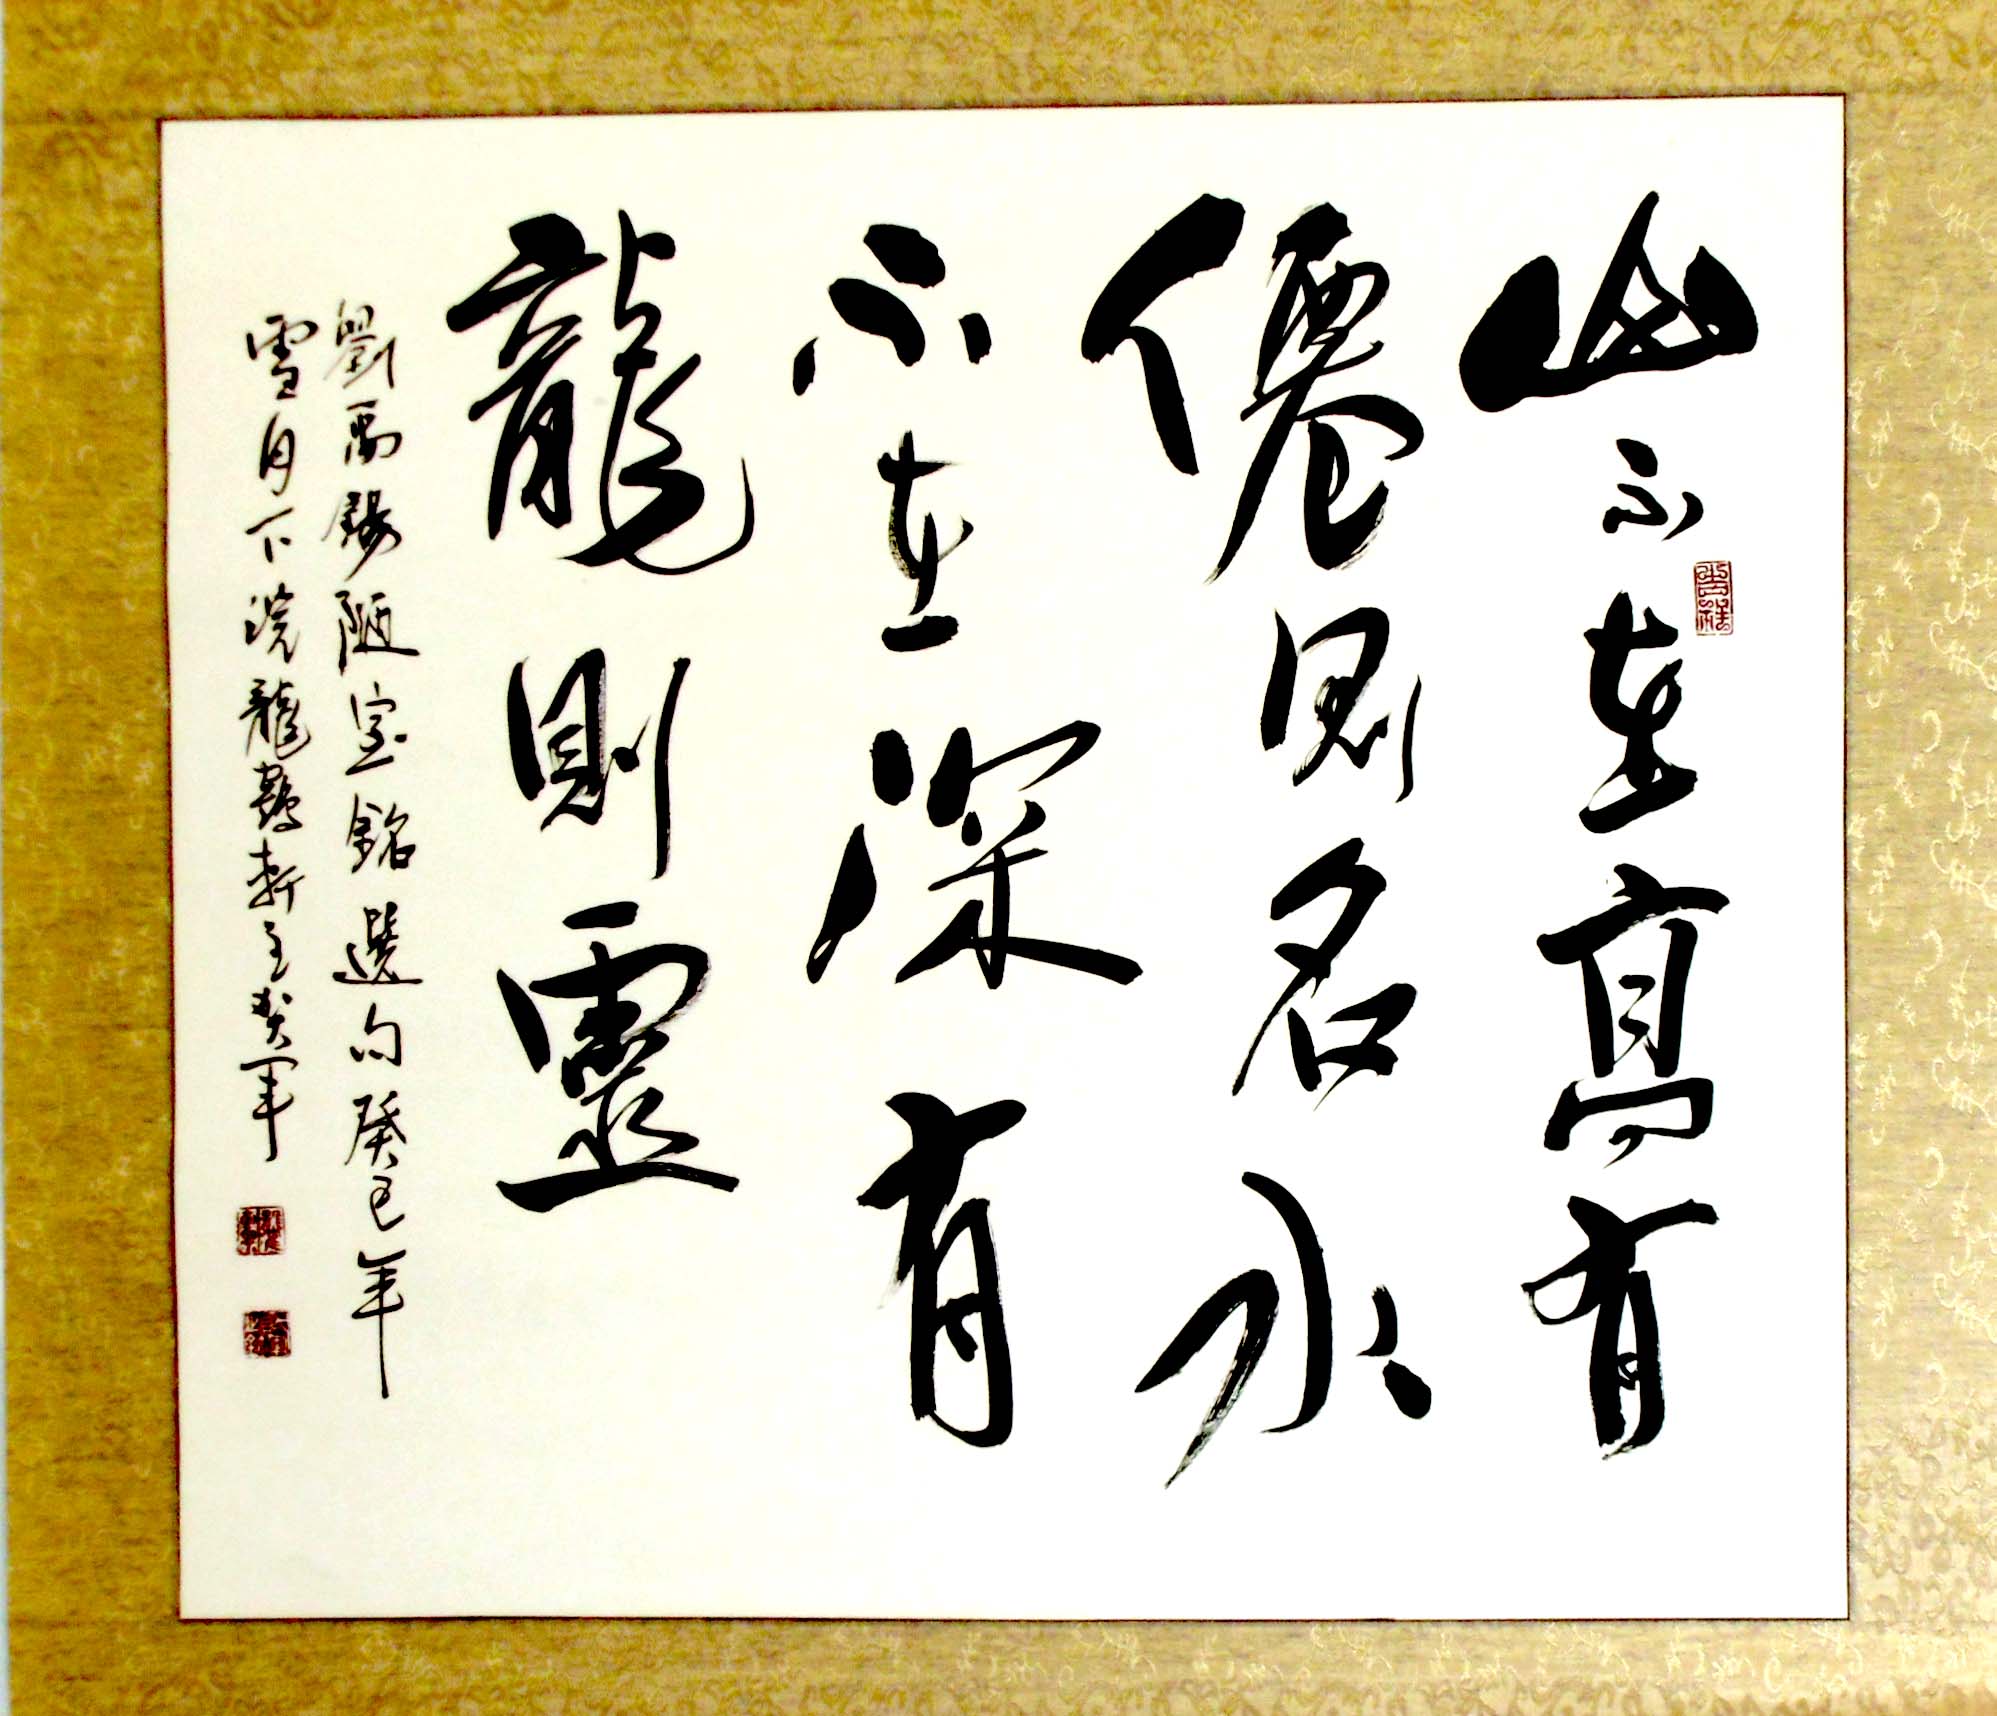 山不在高有
僊則名水
不在深有
龍則靈
劉禹錫陋室銘選句癸巳年
雪月下浣龍鶴軒主癸軍